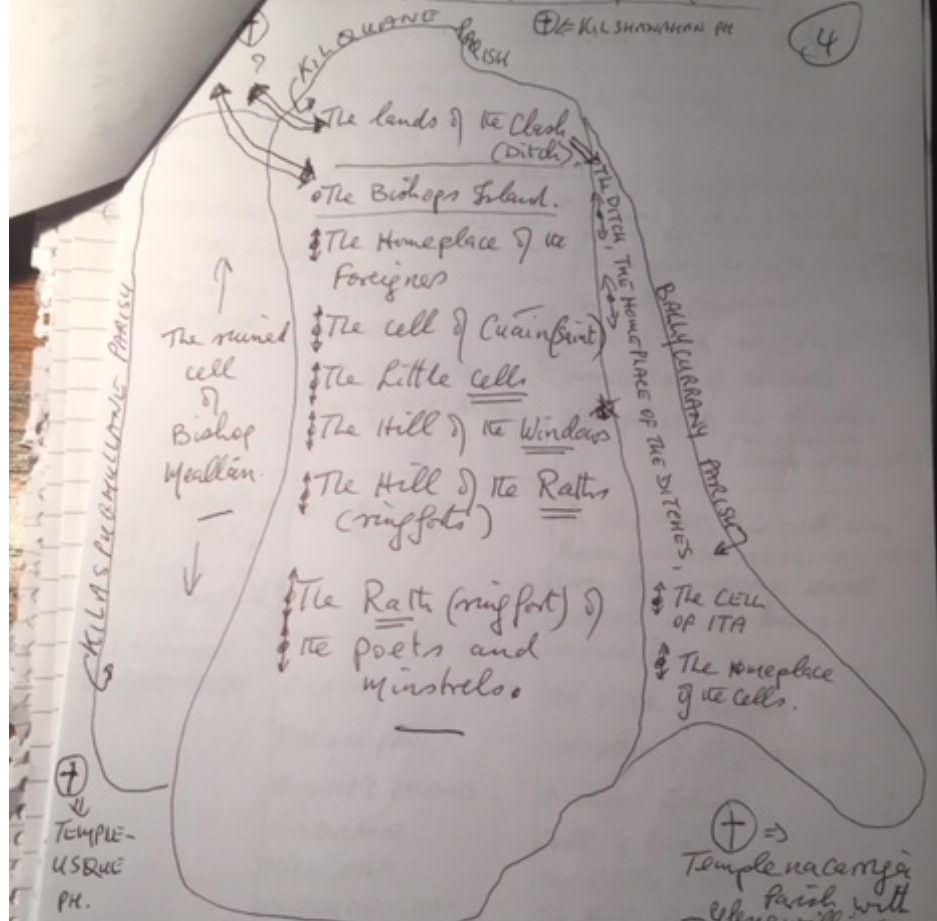 KILQUANE PARISH
⇐ KILSHANAHAN PH
4
?
The lands of the Clash
(Ditch)
The Bishops Island.
The Homeplace of the
Foreigner
The cell of Cuain (Saint)
The Little cells
The Hill of the Windows
The Hill of the Raths
(ringforts)
The Rath (ringfort) of
the poets and
minstrels.
KILASPUGMULLANE PARISH
The ruined
cell
of
Bishop
Meallán.
THE DITCH, THE HOMEPLACE OF THE DITCHES,
BALLYCURRANY PARISH
The CELL
OF ITA
The Homeplace
of the cells.
TEMPLE-
USQUE
PH.
Templenacarriga
Parish with